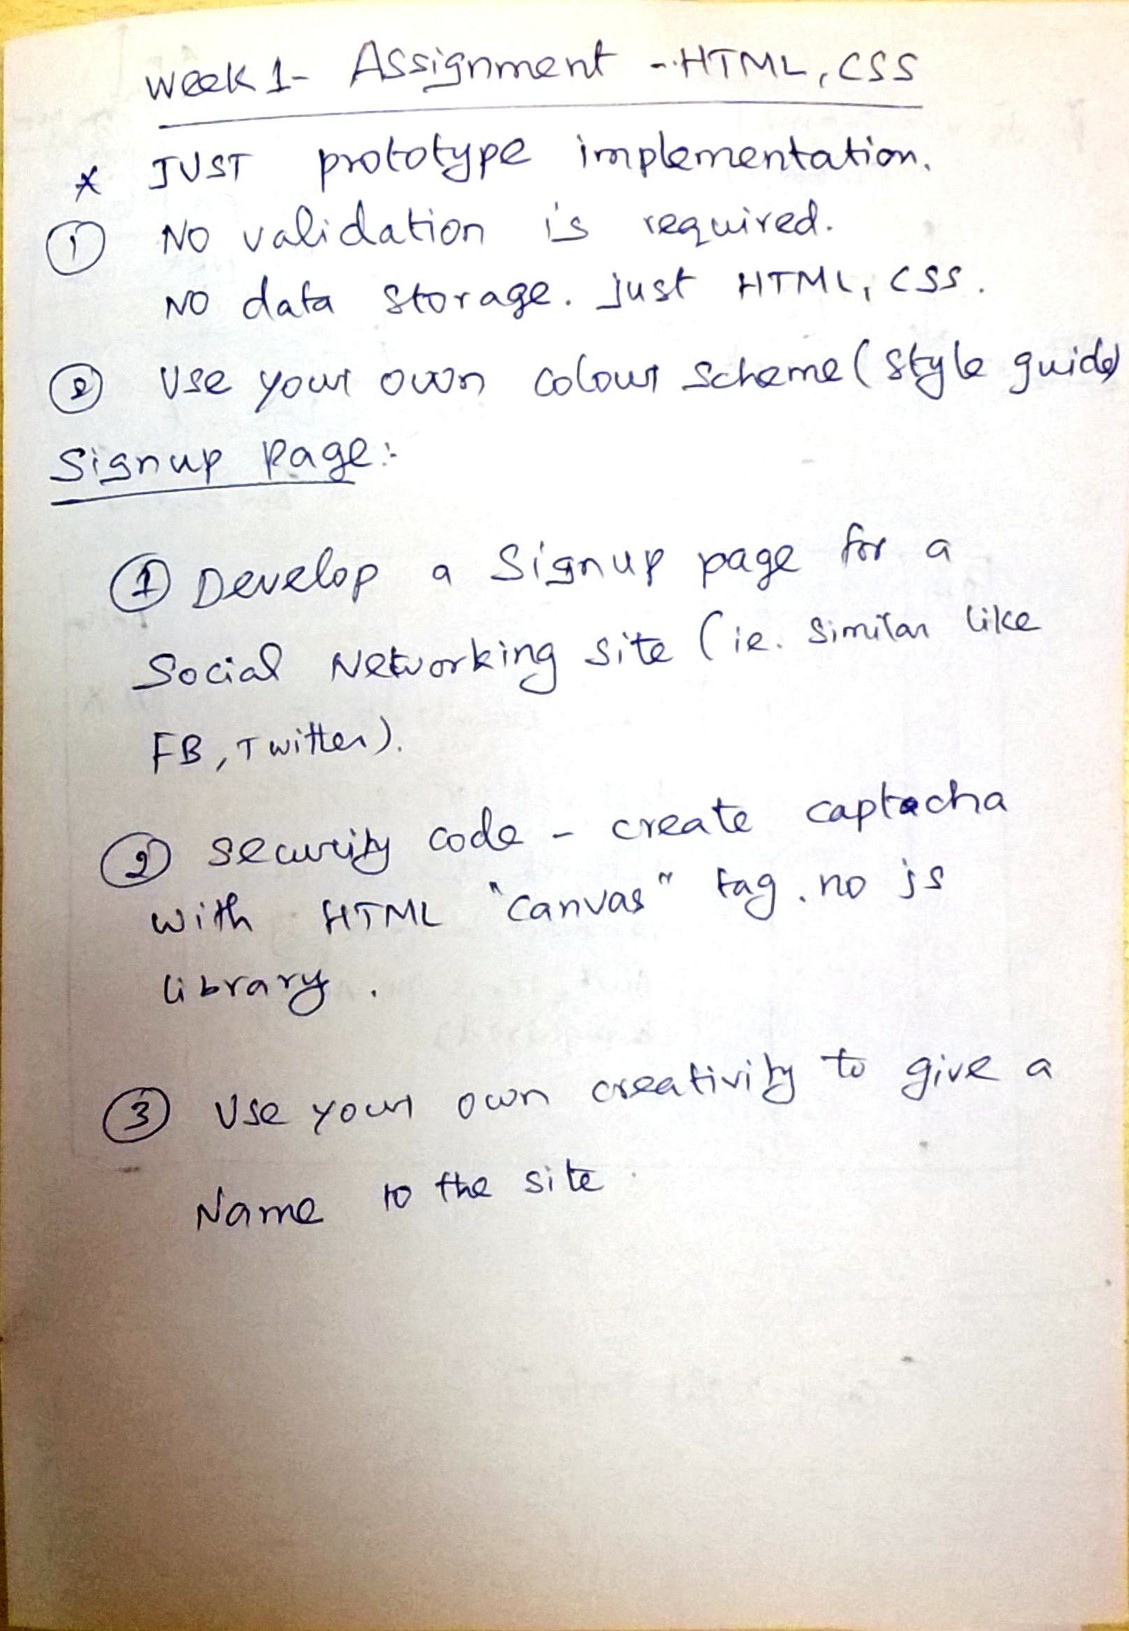 Week 1- Assignment - HTML, CSS
* JUST prototype implementation.
① NO validation is required.
NO data storage. just HTML, CSS.
② Use your own colour scheme (style guide)
Signup Page:-
① Develop a Signup page for a
Social Networking site (ie. Similar like
FB, Twitter).
② Security code - create captacha
with HTML "canvas" tag. no js
library.
③ Use your own creativity to give a
Name to the site.